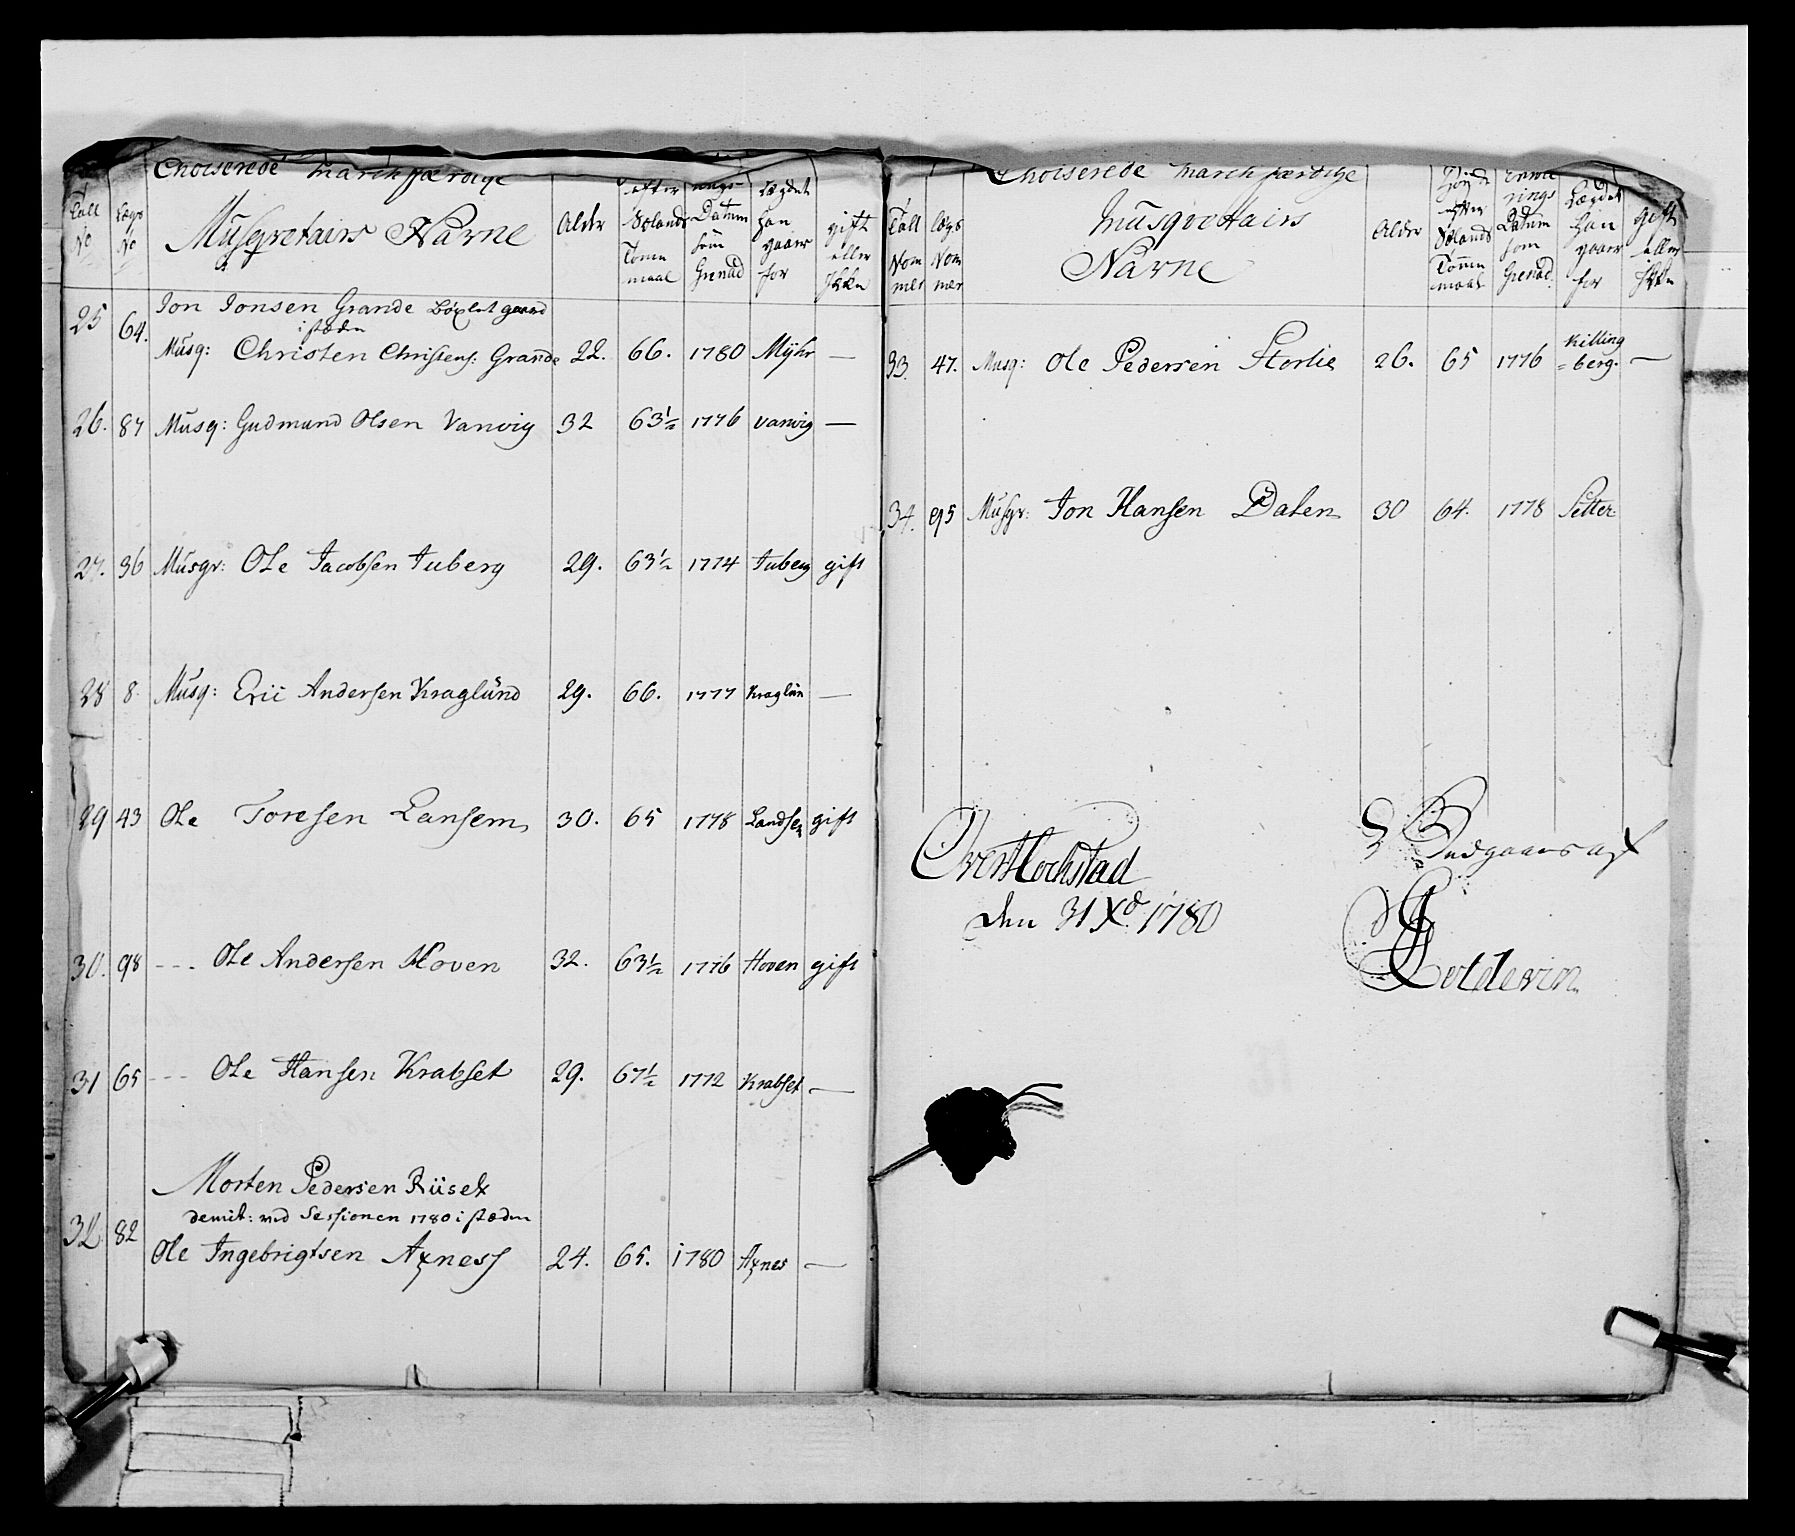 Choiserede marchfærdige
Musqvetairs Navne
Tall No
Lægs No
Alder
efter Sælands Tomm maal
rings Datum som Grenad
Lægdet han gaaer for
gift eller Ikke
25 64. Jon Jonsen Grande
i stæden
Musq: Christen Christens: Grande 22. 66. 1780 Myhr —
26. 87 Musq: Gudmund Olsen Vanvig 32 63½ 1776 vanvig —
27. 36 Musqv: Ole Jacobsen Tuberg 29. 63½ 1774 Tuberg gift
28 8. Musq: Eric Andersen Kraglünd 29. 66. 1777 Kraglün —
29 43 Ole Toresen Lansem 30. 65 1778 Landsem gift
30. 98 --- Ole Andersen Hoven 32. 63½ 1776 Hoven gift
31 65 --- Ole Hansen Krabset 29. 67½ 1772 Krabset —
Morten Pedersen Riiset
demit: ved Sessionen 1780 i stæden
32 82 Ole Ingebrigtsen Axness 24. 65. 1780 Axnes —
Choiserede marchfærdige
Musqvetairs
Navne
Tall Nom mer
lægs Nom mer
Alder
Høyde efter Sælands Tomm maal
rings Datum som Grenad:
Lægdet han gaaer for
gift eller Ikke
33. 47. Musq: Ole Pedersen Storlie 26. 65 1776 Killing =berg. —
34. 95 Musqv: Jon Hansen Dalen 30 64. 1778 Setter
den 31 Xb 1780
Coldevin